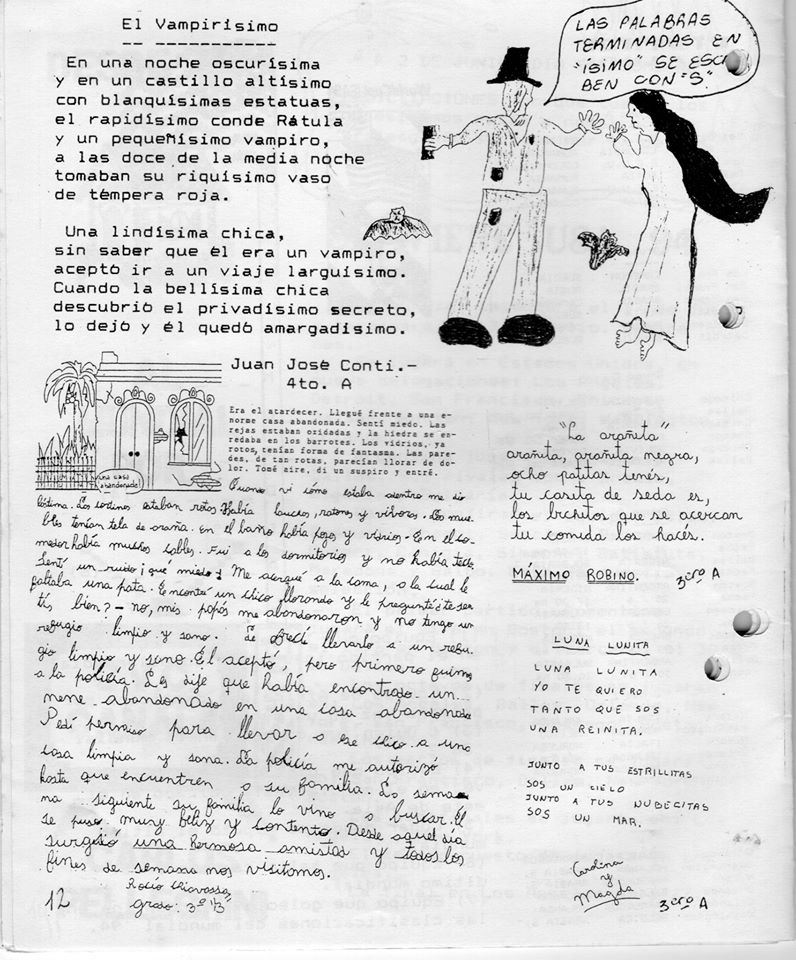 El Vampirísimo
En una noche oscurísima
y en un castillo altísimo
con blanquísimas estatuas,
el rapidísimo conde Rátula
y un pequeñísimo vampiro,
a las doce de la media noche
tomaban su riquísimo vaso
de témpera roja.
Una lindísima chica,
sin saber que él era un vampiro,
aceptó ir a un viaje larguísimo.
Cuando la bellísima chica
descubrió el privadísimo secreto,
lo dejó y él quedó amargadísimo.
Juan José Conti.-
4to. A
LAS PALABRAS
TERMINADAS EN
"ÍSIMO" SE ESCRI
BEN CON "S".
una casa
abandonada
Era el atardecer. Llegué frente a una e-
norme casa abandonada. Sentí miedo. Las
rejas estaban oxidadas y la hiedra se en-
redaba en los barrotes. Los vidrios, ya
rotos, tenían forma de fantasma. Las pare-
des, de tan rotas, parecían llorar de do-
lor. Tomé aire, di un suspiro y entré.
Cuando vi cómo estaba adentro me dió
lástima. Las cortinas estaban rotas. Había lauchas, ratones y víboras. Los mue-
bles tenían tela de araña. En el baño había pozos y vidrios. En el co-
medor había muchos cables. Fui a los dormitorios y no había techo.
Sentí un ruido ¡qué miedo! Me acerqué a la cama, a la cual le
faltaba una pata. Encontré un chico llorando y le pregunté ¿te sen-
tís bien? - no, mis papás me abandonaron y no tengo un
refugio limpio y sano. Le ofrecí llevarlo a un refu-
gio limpio y sano. Él aceptó, pero primero fuimos
a la policía. Les dije que había encontrado un
nene abandonado en una casa abandonada
Pedí permiso para llevar a ese chico a una
casa limpia y sana. La policía me autorizó
hasta que encuentren a su familia. La sema-
na siguiente su familia lo vino a buscar. Él
se puso muy feliz y contento. Desde aquel día
surgió una hermosa amistad y todos los
fines de semana nos visitamos.
Rocío Chiavassa
grado: 3º "B"
12
"La arañita"
arañita, arañita negra,
ocho patitas tenés,
tu casita de seda es,
los bichitos que se acercan
tu comida los hacés.
MÁXIMO ROBINO. 3ero A
LUNA LUNITA
LUNA LUNITA
YO TE QUIERO
TANTO QUE SOS
UNA REINITA.
JUNTO A TUS ESTRILLITAS
SOS UN CIELO
JUNTO A TUS NUBECITAS
SOS UN MAR.
Carolina
y
Magda
3ero A